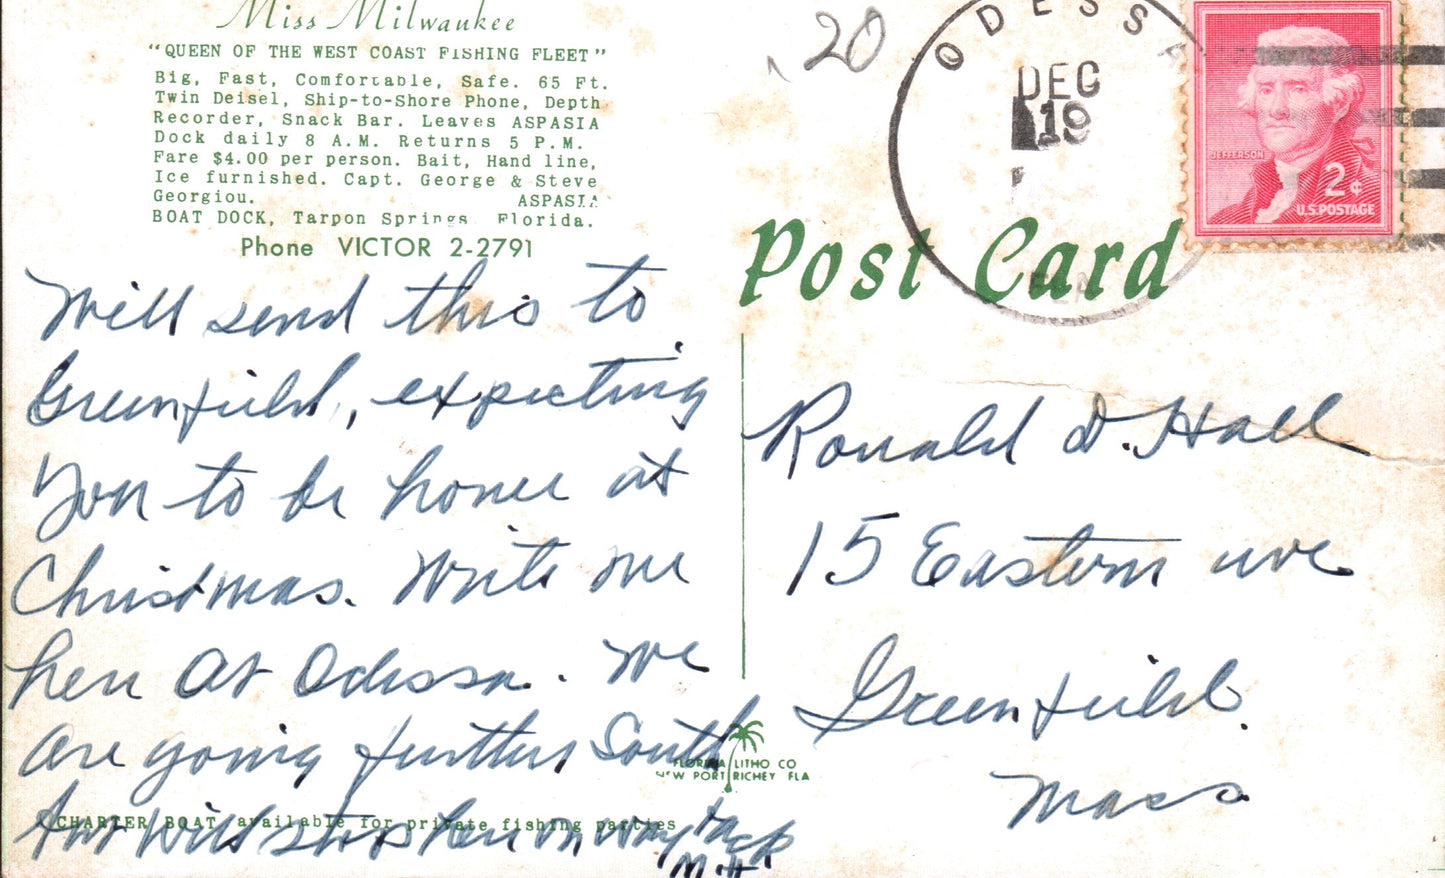 Miss Milwaukee
"QUEEN OF THE WEST COAST FISHING FLEET"
Big, Fast, Comfortable, Safe. 65 Ft.
Twin Deisel, Ship-to-Shore Phone, Depth
Recorder, Snack Bar. Leaves ASPASIA
Dock daily 8 A.M. Returns 5 P.M.
Fare $4.00 per person. Bait, Hand line,
Ice furnished. Capt. George & Steve
Georgiou. ASPASIA
BOAT DOCK, Tarpon Springs Florida.
Phone VICTOR 2-2791
Will send this to
Greenfield, expecting
You to be home at
Christmas. Write me
here at Odessa. We
are going further South
but will stop here on way back
M.H
CHARTER BOAT available for private fishing parties
20
ODESSA
DEC
19
FLA
JEFFERSON
2¢
U.S. POSTAGE
Post Card
Ronald D. Hall
15 Eastern ave
Greenfield.
Mass
FLORIDA LITHO CO
NEW PORT RICHEY FLA